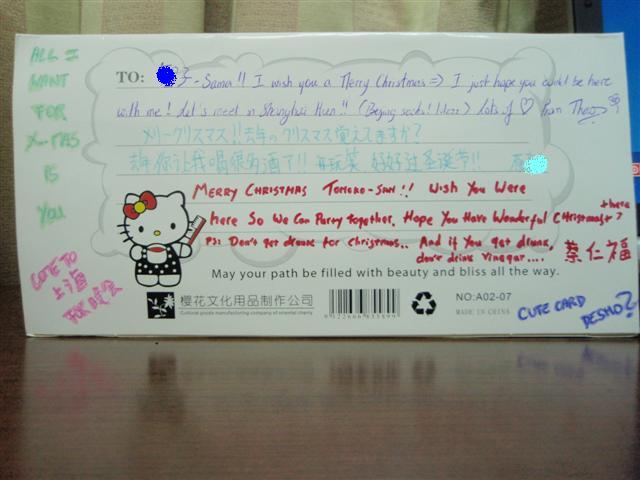 ALL I
WANT
FOR
X-MAS
IS
YOU
TO: 子-Sama!! I wish you a Merry Christmas =) I just hope you could be here
with me! Let's meet in Shanghai then!! (Beijing sucks! lol) Lots of ♡ from
メリークリスマス!! 去年のクリスマス覚えてますか?
去年你让我喝很多酒了!! 开玩笑 好好过圣诞节!!
MERRY CHRISTMAS TOMOKO-SAN!! WISH YOU WERE
here So We Can Party Together. Hope You Have Wonderful Christmas there
PS: Don't get drunk for Christmas.. And if You get drunk,
don't drink Vinegar....
蔡仁福
COME TO
上海
FOR
May your path be filled with beauty and bliss all the way.
樱花文化用品制作公司
Cultural goods manufacturing company of oriental cherry
NO:A02-07
MADE IN CHINA
CUTE CARD
DESHO?